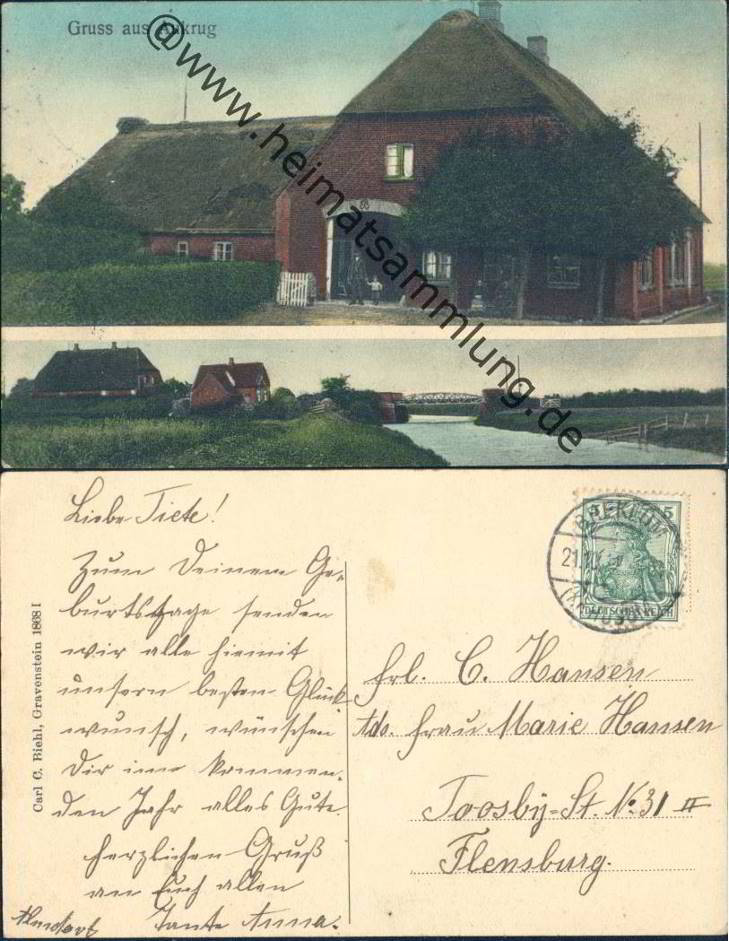 Gruss aus Aukrug
@www.heimatsammlung.de
Liebe Tiete!
Zum Deinem Ge-
burtstage senden
wir alle hiemit
unsern besten Glück
wunsch, wünschen
Dir im kommen-
den Jahr alles Gute.
herzlichen Gruß
an Euch allen
Tante Anna.
Carl C. Biehl, Gravenstein 1868 I
BREKLUM
21.
5
DEUTSCHES REICH
Frl. C. Hansen
Adr. Frau Marie Hansen
Toosby-St. No. 31 II
Flensburg.